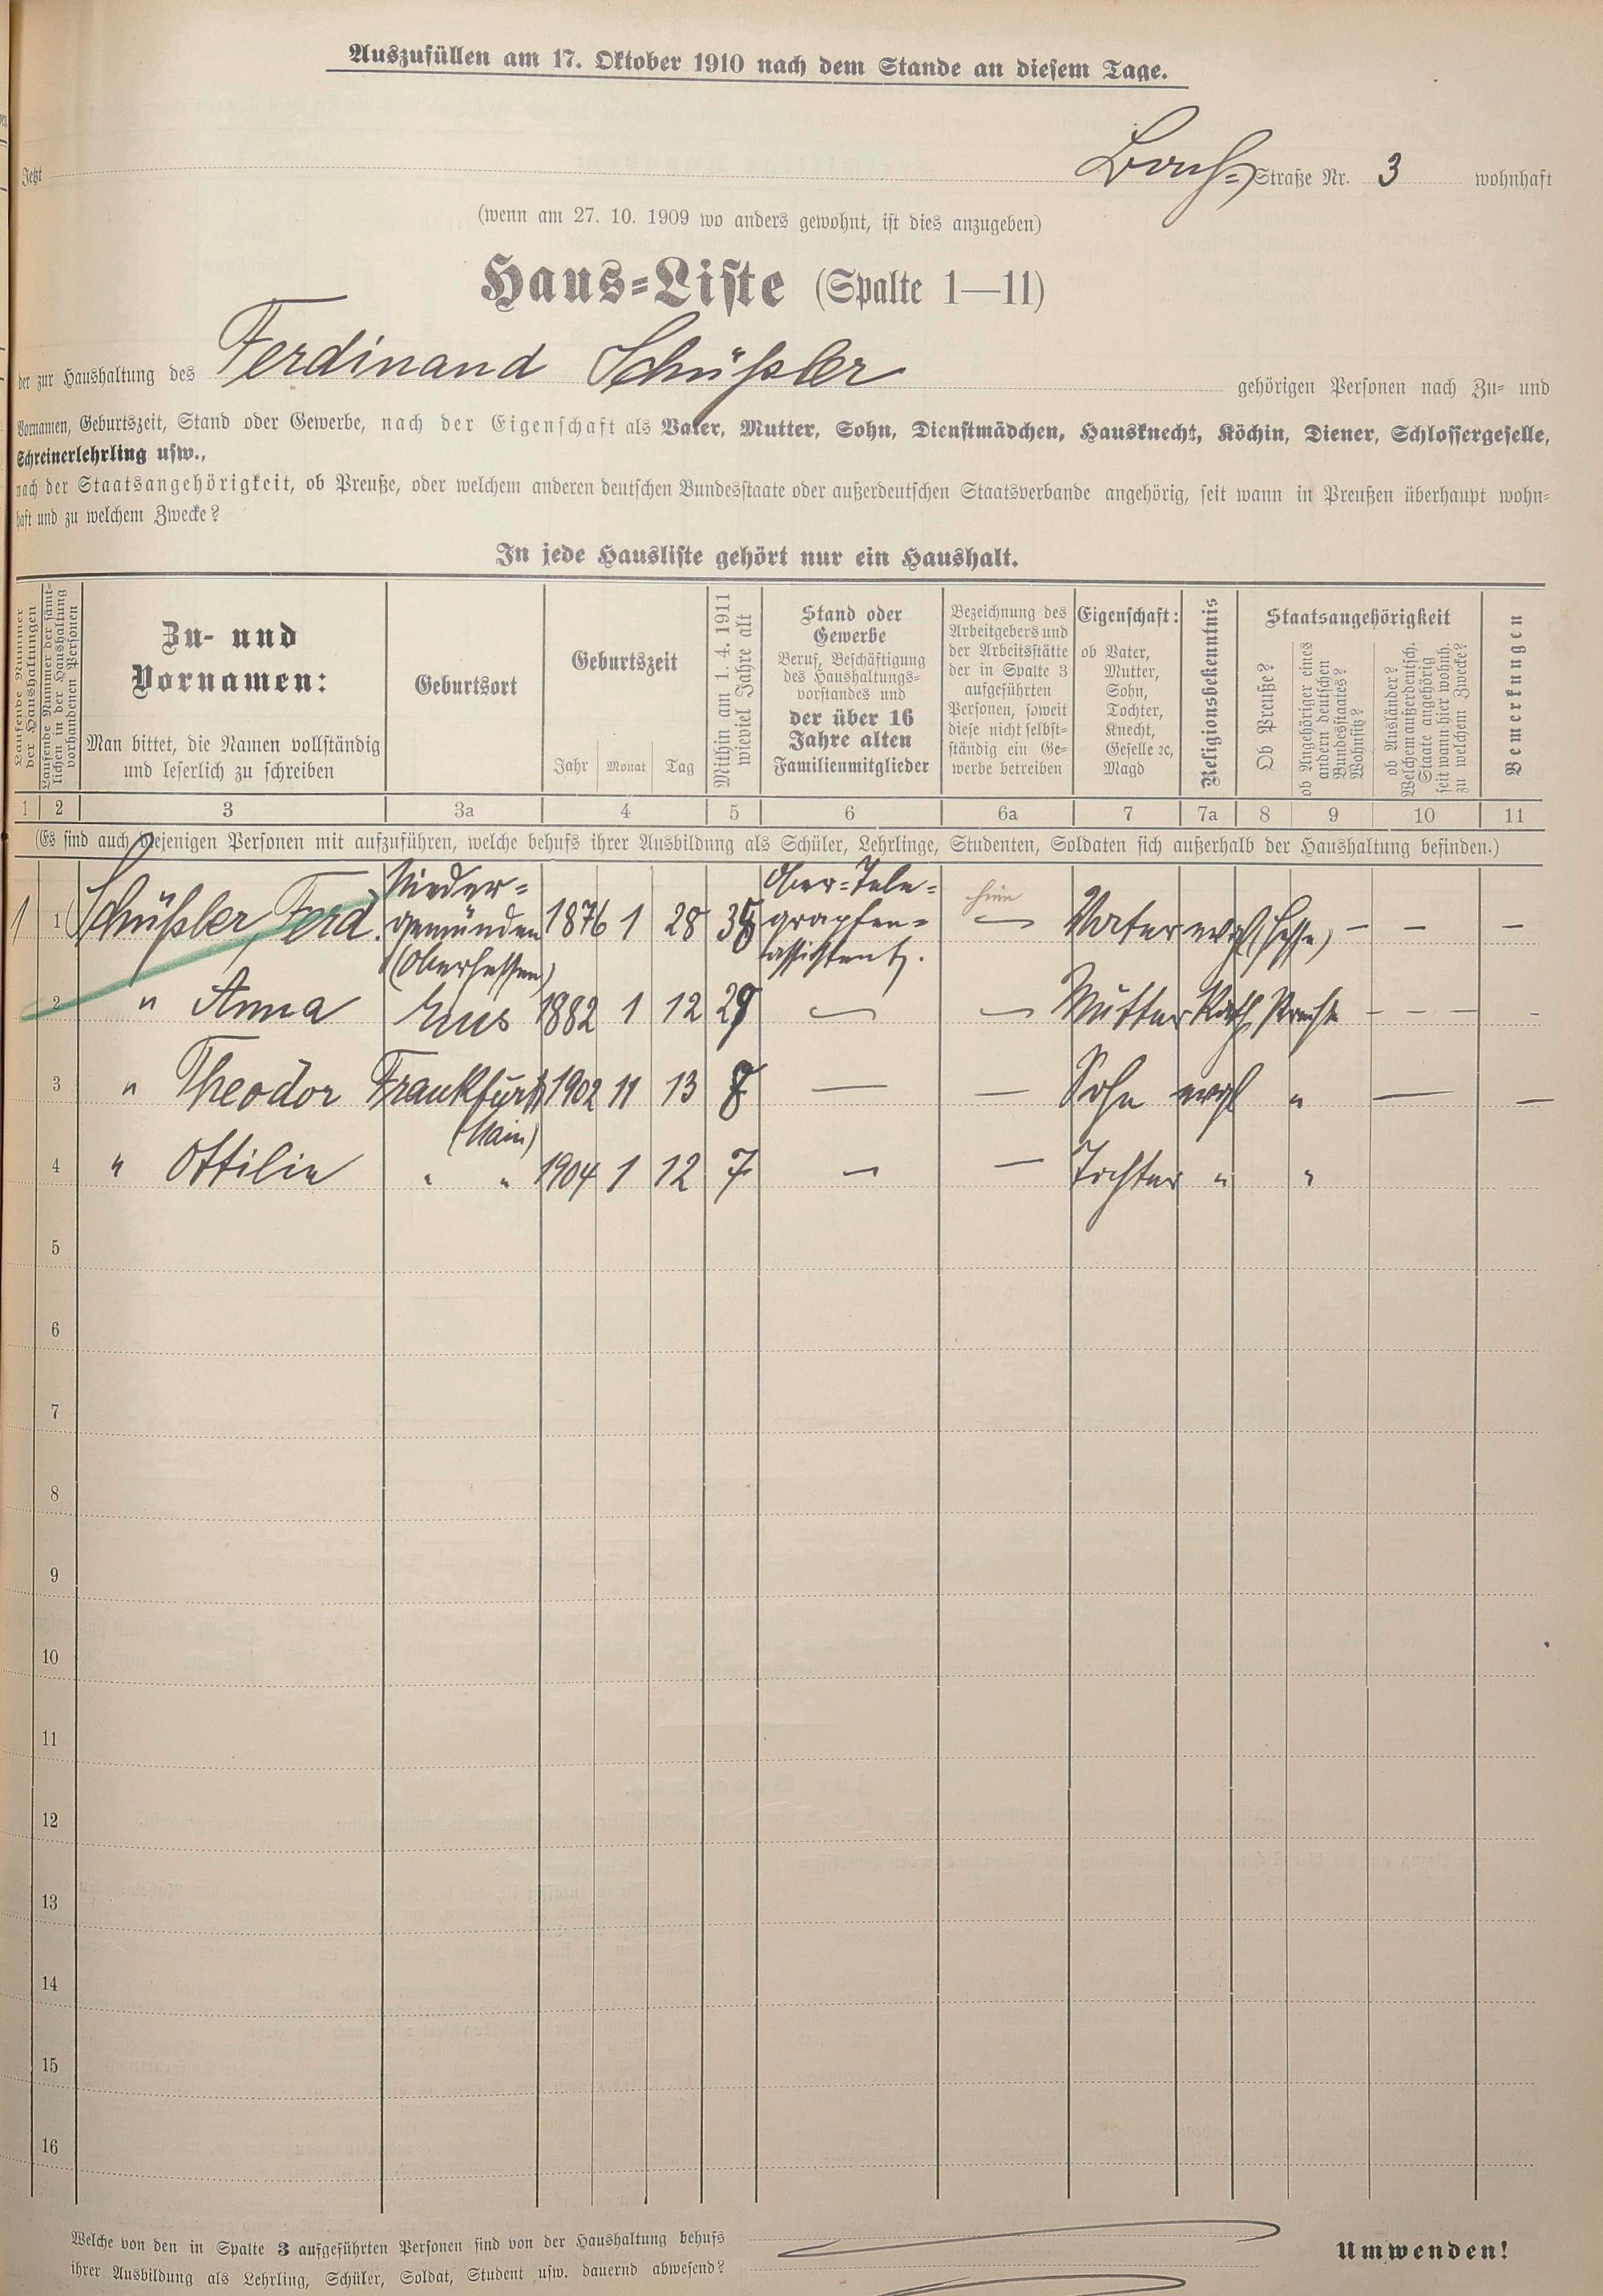 Auszufüllen am 17. Oktober 1910 nach dem Stande an diesem Tage.
Jetzt Straße Nr. 3 wohnhaft
(wenn am 27. 10. 1909 wo anders gewohnt, ist dies anzugeben)
Haus=Liste (Spalte 1—11)
der zur Haushaltung des Ferdinand Schüßler gehörigen Personen nach Zu= und
Vornamen, Geburtszeit, Stand oder Gewerbe, nach der Eigenschaft als Vater, Mutter, Sohn, Dienstmädchen, Hausknecht, Köchin, Diener, Schlossergeselle,
Schreinerlehrling usw.,
nach der Staatsangehörigkeit, ob Preuße, oder welchem anderen deutschen Bundesstaate oder außerdeutschen Staatsverbande angehörig, seit wann in Preußen überhaupt wohn=
haft und zu welchem Zwecke?
In jede Hausliste gehört nur ein Haushalt.
Laufende Nummer
der Haushaltungen
Laufende Nummer der sämt=
lichen in der Haushaltung
vorhandenen Personen
Zu- und
Vornamen:
Man bittet, die Namen vollständig
und leserlich zu schreiben
Geburtsort
Geburtszeit
Jahr Monat Tag
Mithin am 1. 4. 1911
wieviel Jahre alt
Stand oder
Gewerbe
Beruf, Beschäftigung
des Haushaltungs=
vorstandes und
der über 16
Jahre alten
Familienmitglieder
Bezeichnung des
Arbeitgebers und
der Arbeitsstätte
der in Spalte 3
aufgeführten
Personen, soweit
diese nicht selbst=
ständig ein Ge=
werbe betreiben
Eigenschaft:
ob Vater,
Mutter,
Sohn,
Tochter,
Knecht,
Geselle ꝛc,
Magd
Religionsbekenntnis
Staatsangehörigkeit
Ob Preuße?
ob Angehöriger eines
andern deutschen
Bundesstaates?
Wohnsitz?
ob Ausländer?
Welchem außerdeutsch.
Staate angehörig
seit wann hier wohnh.
zu welchem Zwecke?
Bemerkungen
1 2 3 3a 4 5 6 6a 7 7a 8 9 10 11
(Es sind auch diejenigen Personen mit aufzuführen, welche behufs ihrer Ausbildung als Schüler, Lehrlinge, Studenten, Soldaten sich außerhalb der Haushaltung befinden.)
Nieder= Ober=Tele=
1 1 Schüßler, Ferd. gemünden 1876 1 28 35 graphen= — Vater evgl (Hesse) — — —
(Oberhessen) assistent.
2 " Anna Ems 1882 1 12 29 — — Mutter Kath. — — — -
3 " Theodor Frankfurt 1902 11 13 8 — — Sohn evgl " — —
(Main)
4 " Ottilie " " 1904 1 12 7 — — Tochter " "
5
6
7
8
9
10
11
12
13
14
15
16
Welche von den in Spalte 3 aufgeführten Personen sind von der Haushaltung behufs
ihrer Ausbildung als Lehrling, Schüler, Soldat, Student usw. dauernd abwesend?
Umwenden!